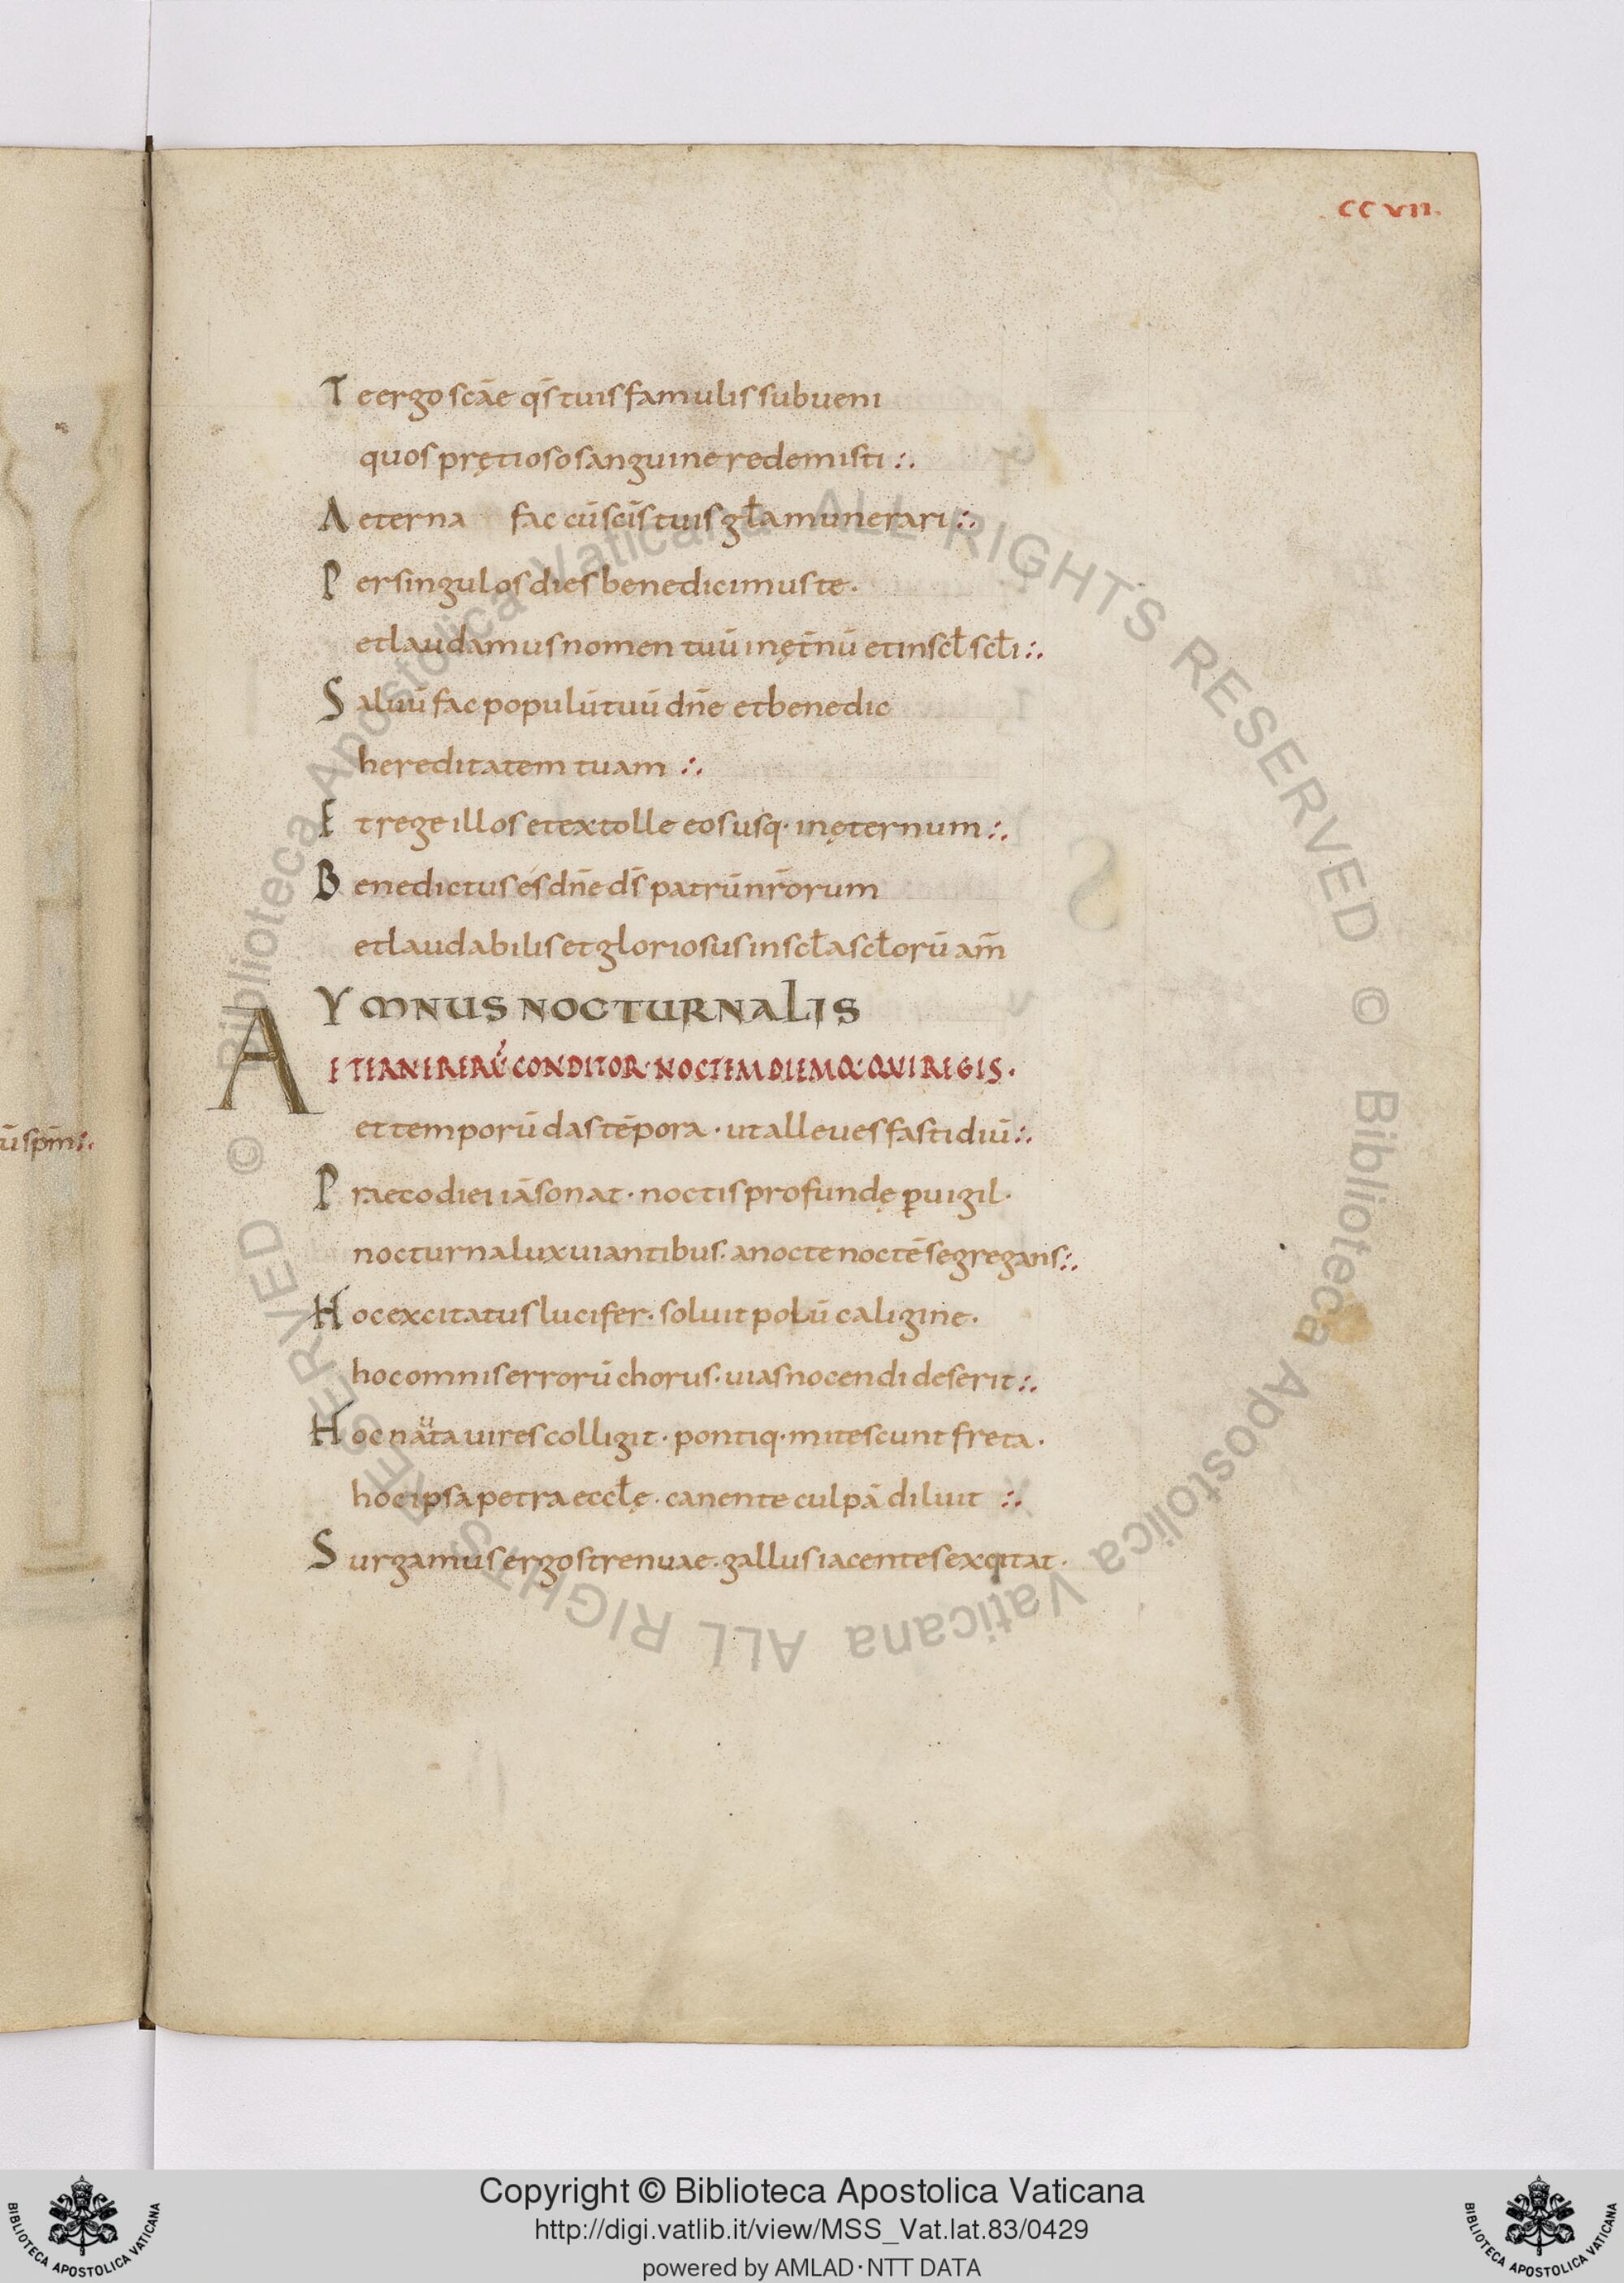 CCVII.
T e ergo scāe qs̄ tuis famulis subueni
quos pręcioso sanguine redemisti :.
A eterna fac cū sc̄is tuis gła munerari :.
P er singulos dies benedicimus te.
et laudamus nomen tuū in ęt̄nū et in scł scłi :.
S aluū fac populū tuū dn̄e et benedic
hereditatem tuam :.
E t rege illos et extolle eos usq· in ęternum :.
B enedictus és dn̄e ds̄ patrū nr̄orum
et laudabilis et gloriosus in scła scłorū am̄
YMNUS NOCTURNALIS
A ETERNE RERŪ CONDITOR· NOCTEM DIEMQ· QUI REGIS·
et temporū das tēpora · ut alleues fastidiū :.
ū spm̄ :.
P raeco diei iā sonat · noctis profundę ꝑuigil·
nocturna lux uiantibus· a nocte noctē segregans :.
H oc excitatus lucifer· soluit polū caligine·
hoc omnis errorū chorus· uias nocendi deserit :.
H oc nauta uires colligit · pontiq· mitescunt freta·
hoc ipsa petra ecclę · canente culpā diluit :.
S urgamus ergo strenuae· gallus iacentes excitat·
© Biblioteca Apostolica Vaticana ALL RIGHTS RESERVED
© Biblioteca Apostolica Vaticana ALL RIGHTS RESERVED
Copyright © Biblioteca Apostolica Vaticana
http://digi.vatlib.it/view/MSS_Vat.lat.83/0429
powered by AMLAD·NTT DATA
BIBLIOTECA APOSTOLICA VATICANA
BIBLIOTECA APOSTOLICA VATICANA